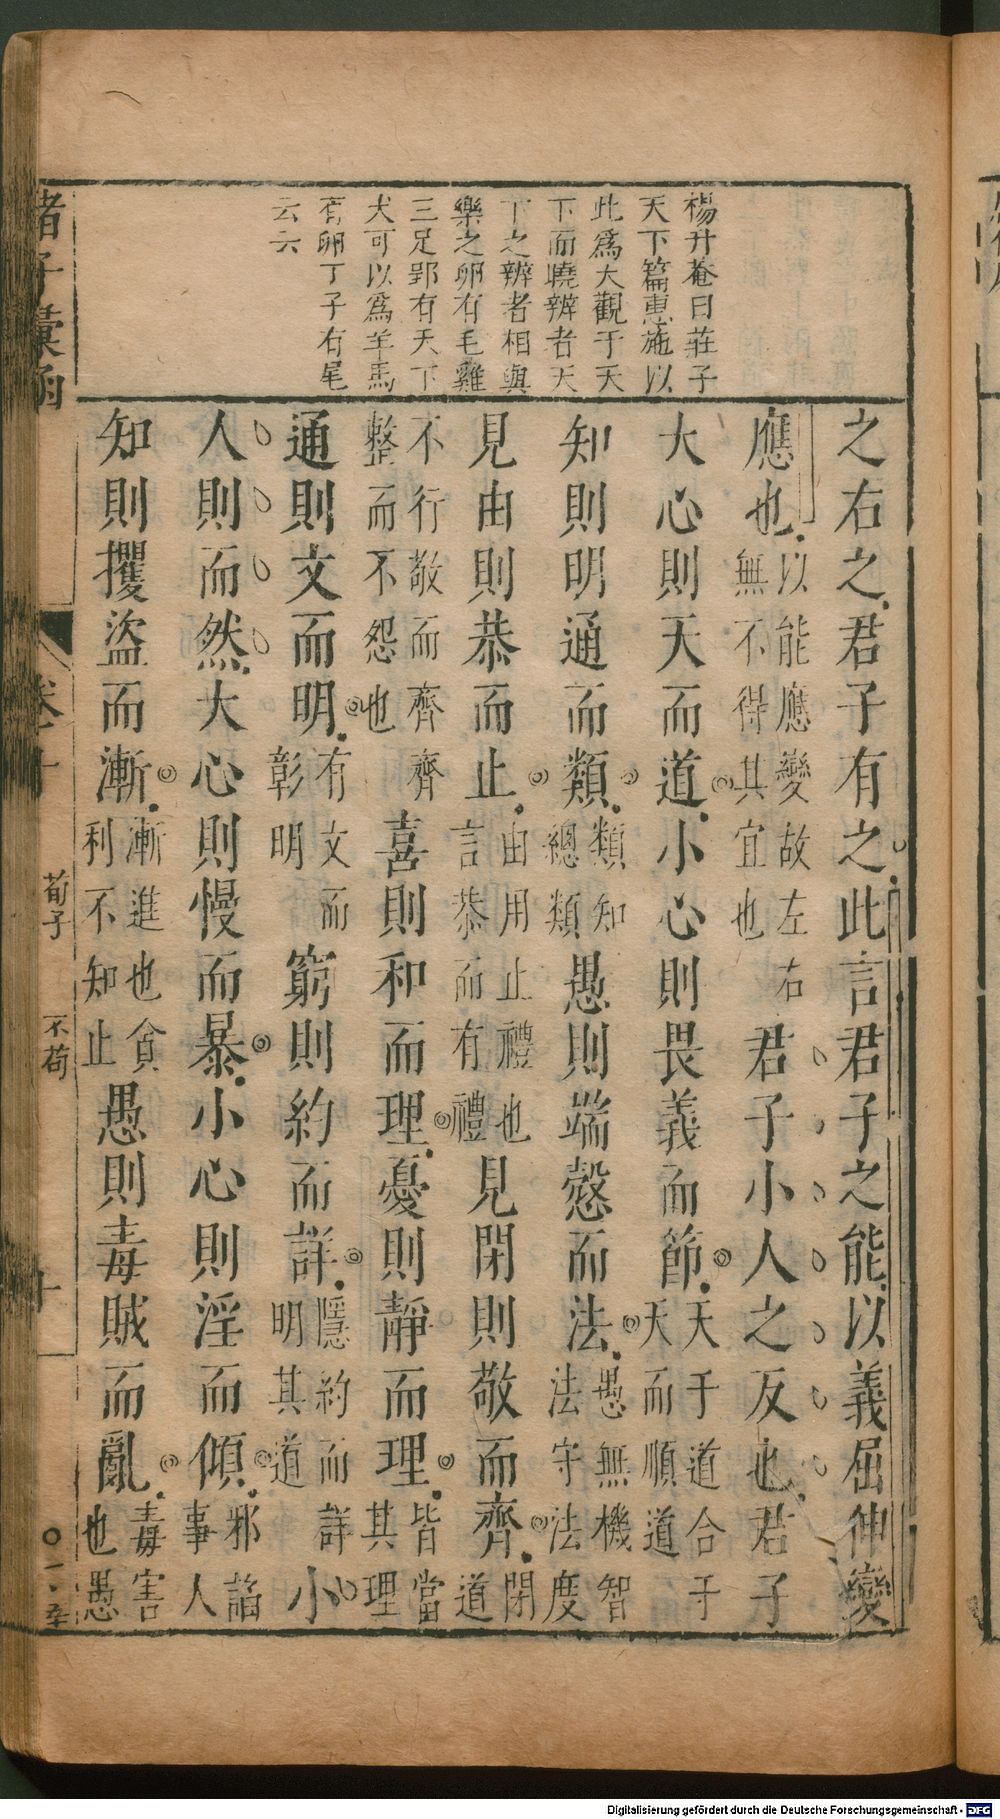 楊升菴曰莊子
天下篇惠施以
此爲大觀于天
下而曉辨者天
下之辨者相與
樂之卵有毛雞
三足郢有天下
犬可以爲羊馬
有卵丁子有尾
云云
之右之君子有之此言君子之能以義屈伸變
應也以能應變故左右無不得其宜也君子小人之反也君子
大心則天而道小心則畏義而節天于道合于天而順道
知則明通而類類知總類愚則端愨而法愚無機智法守法度
見由則恭而止由用止禮也言恭而有禮見閉則敬而齊閉道
不行敬而齊齊整而不怨也喜則和而理憂則靜而理皆當其理
通則文而明有文而彰明窮則約而詳隱約而詳明其道小
人則而然大心則慢而暴小心則淫而傾邪諂事人
知則攫盜而漸漸進也貪利不知止愚則毒賊而亂毒害也愚
諸子彙函
卷十
荀子
不荀
十
Digitalisierung gefördert durch die Deutsche Forschungsgemeinschaft - DFG